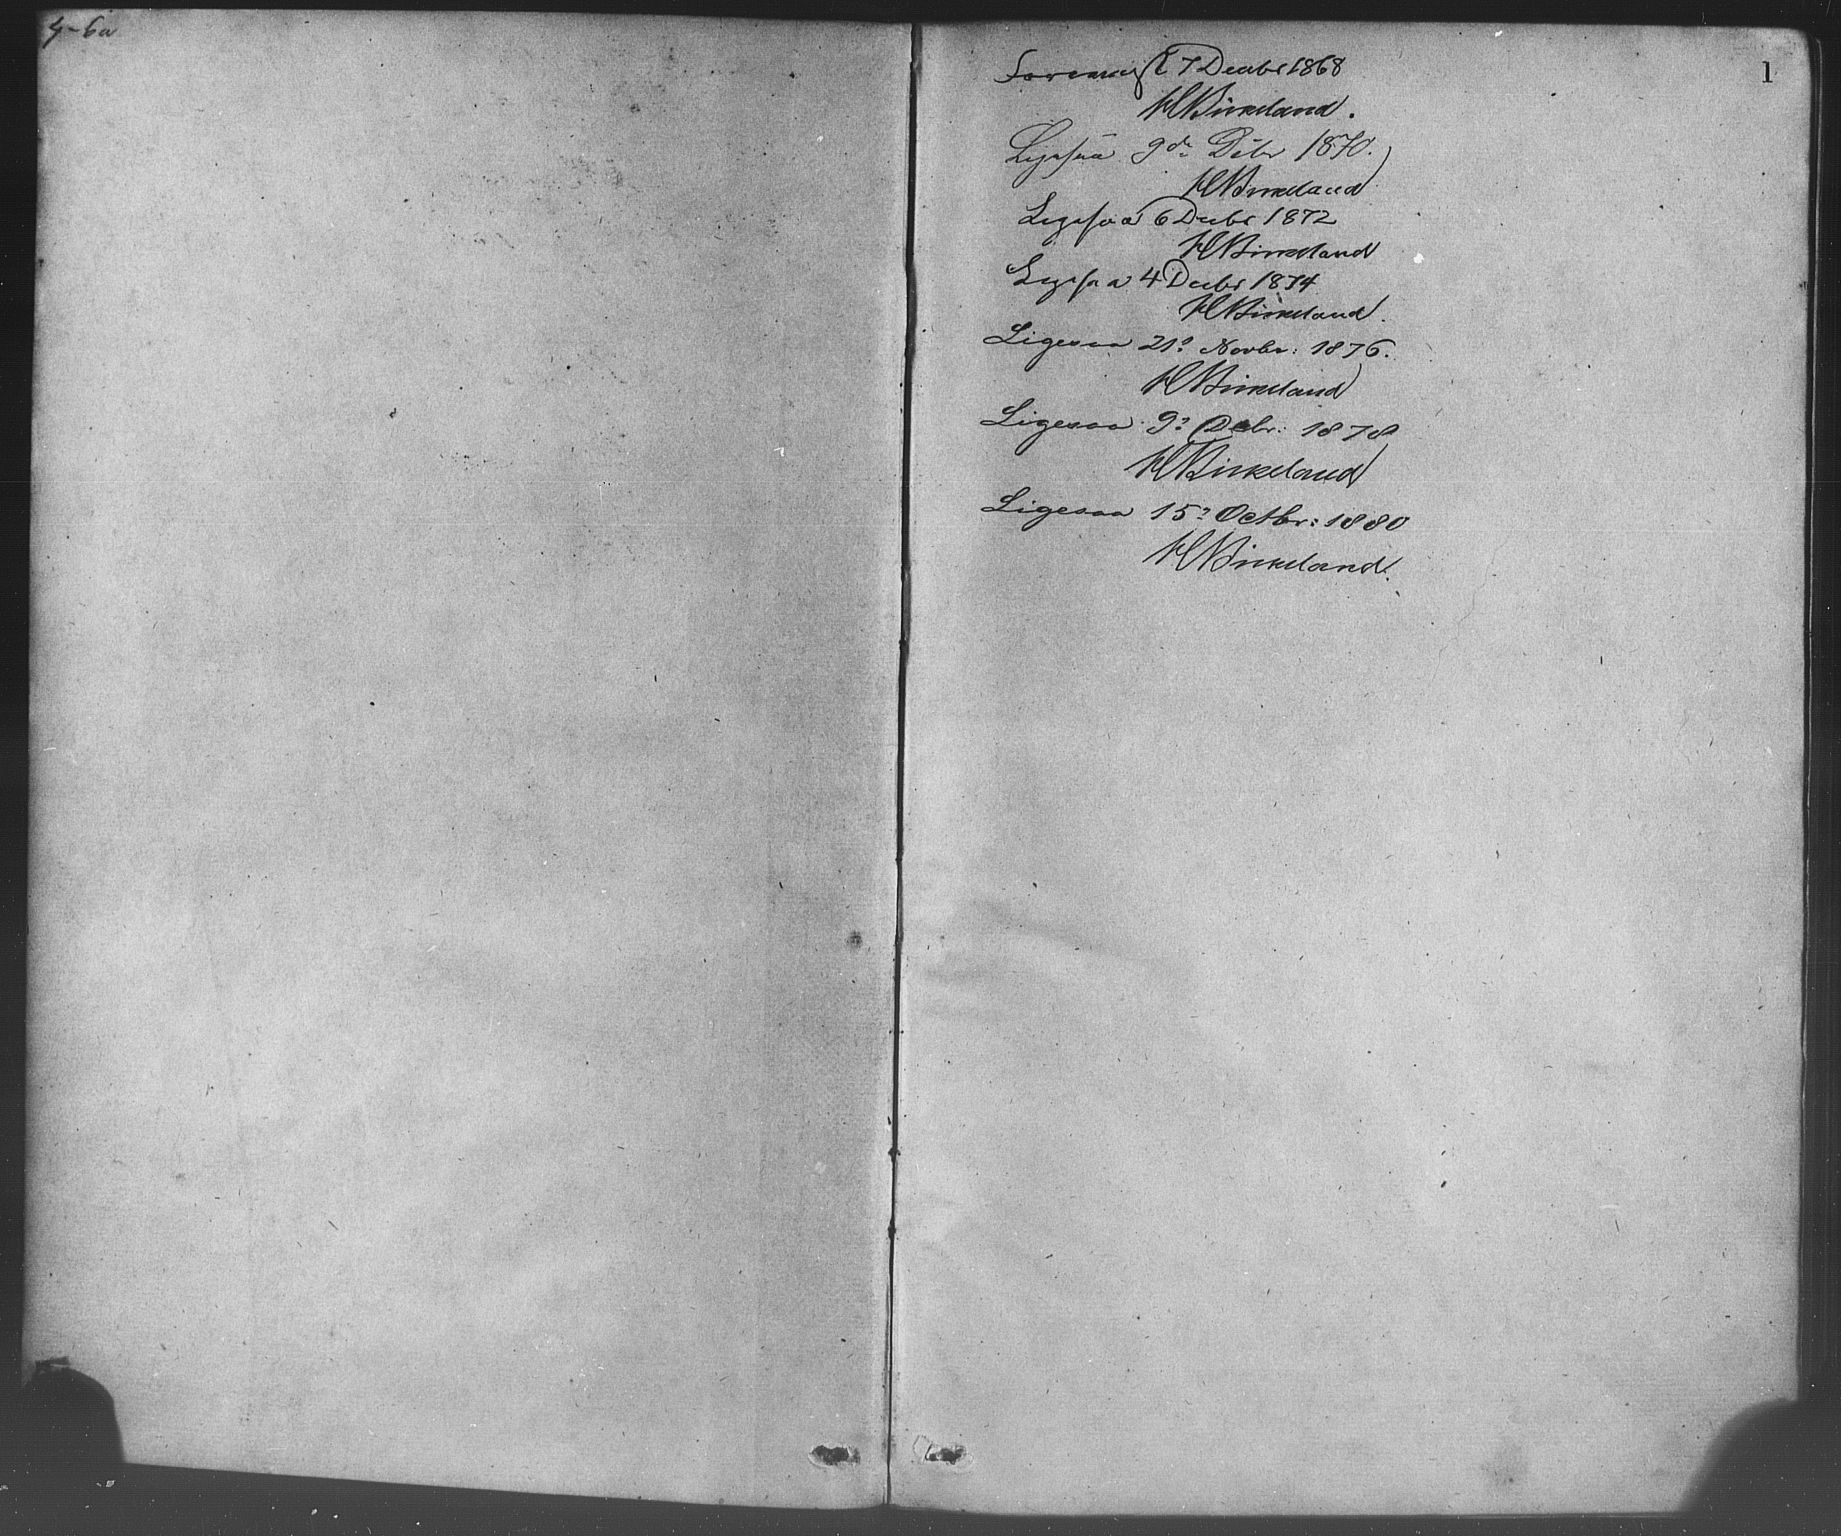 1
Forevist 7 Decbr 1868
HBirkeland.
Ligesaa 9de Dcbr 1870.
HBirkeland
Ligesaa 6 Decbr 1872
HBirkeland
Ligesaa 4 Decbr 1874
HBirkeland.
Ligesaa 21? Novbr: 1876.
HBirkeland
Ligesaa 9? Decbr: 1878
HBirkeland
Ligesaa 15? Octbr: 1880
HBirkeland.